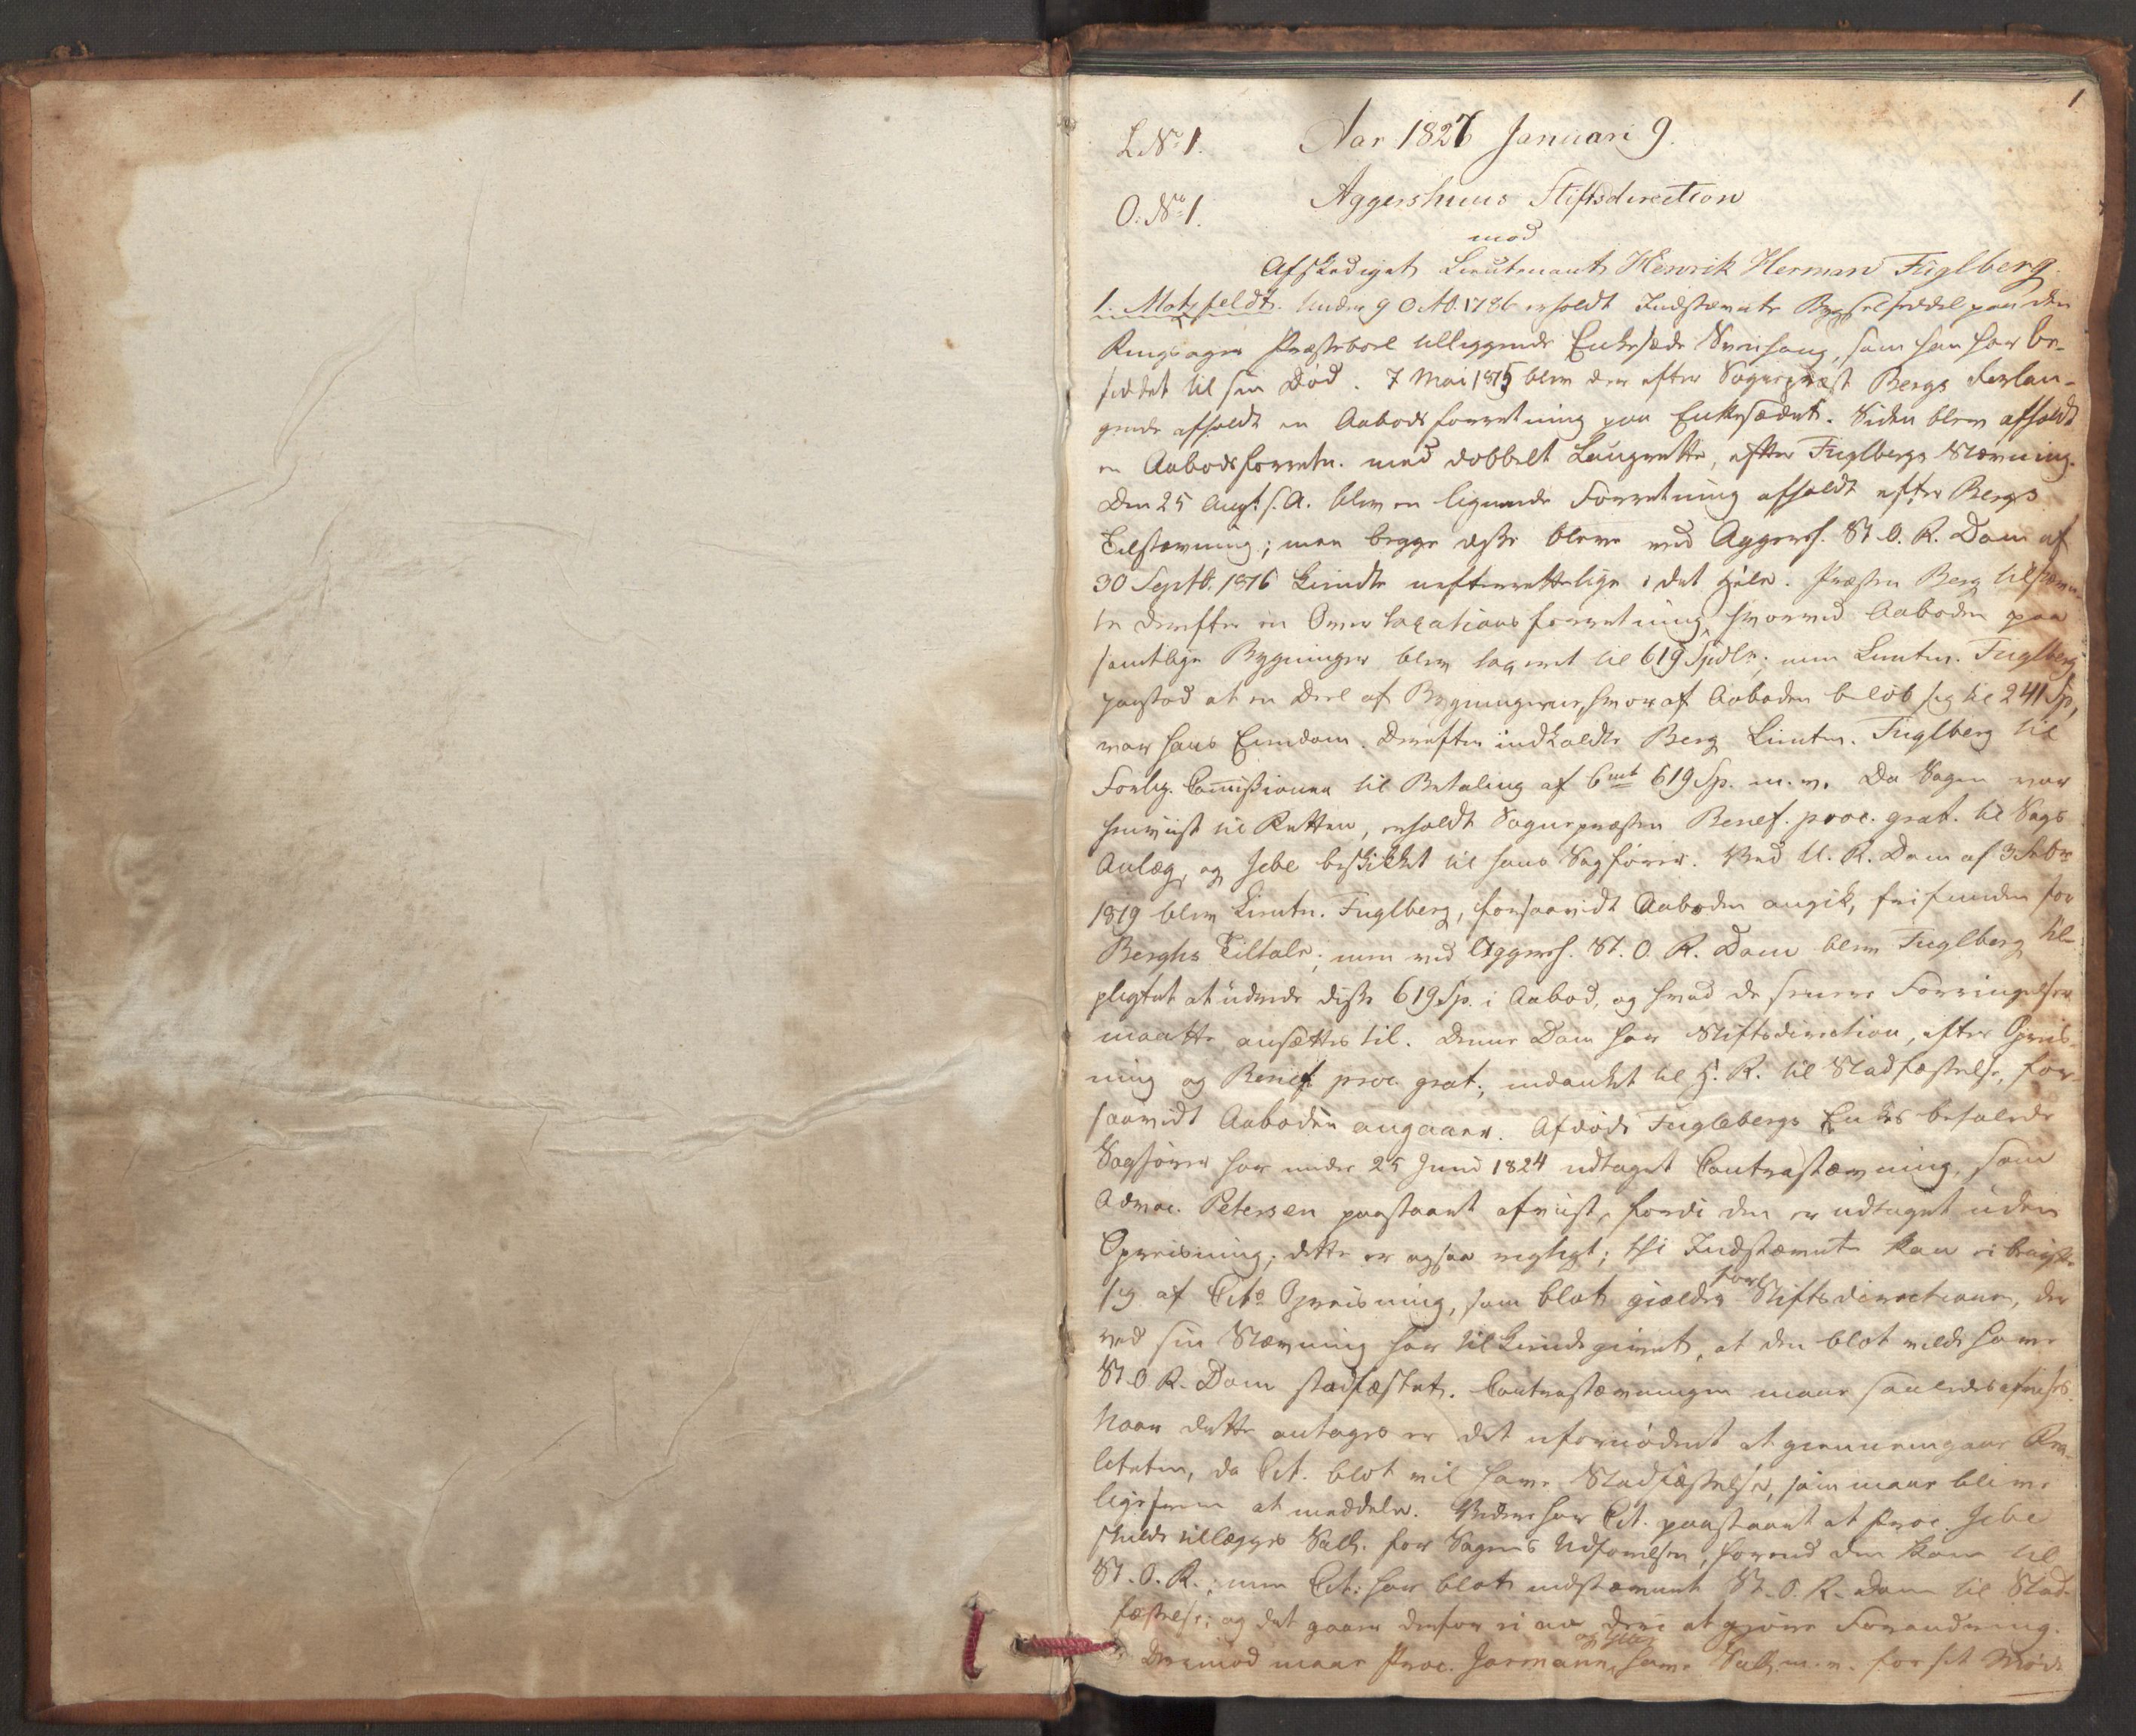 1
L. No. 1. Aar 1827 Januari 9.
O. No. 1. Aggershuus Stiftsdirection
mod
Afskediget Lieutenant Henrik Herman Fuglberg.
1. Motzfeldt. Under 9 Oct. 1786 erholdt Indstævnte Bygselseddel paa det
Ringsager Præsteboel tilliggende Enkesæde Svenhaug, som han har be-
siddet til sin Død. 7 Mai 1815 blev der efter Sogneprest Bergs Forlan-
gende afholdt en Aabodsforretning paa Enkesædet. Siden blev afholdt
en Aabodsforretn. med dobbelt Laugrette, efter Fuglbergs Stævning.
Den 25 Augt. s. A. blev en lignende Forretning afholdt efter Bergs
Tilstævning; men begge disse bleve ved Aggersh. St. O. R. Dom af
30 Septb. 1816 kiendte uefterrettelige i det Hele. Præsten Berg tilstævn-
te derefter en Overtaxationsforretning, hvorved Aaboden paa
samtlige Bygninger blev taxeret til 619 Spdlr; men Lieutn. Fuglberg
paastod at en Deel af Bygningerne, hvoraf Aaboden beløb sig til 241 Sp,
var hans Eiendom. Derefter indkaldte Berg Lieutn. Fuglberg til
Forlig. Commissionen til Betaling af bemt 619 Sp. m. v. Da Sagen var
henviist til Retten, erholdt Sognepræsten Benef. proc. grat. til Sags
Anlæg, og Jebe beskikket til hans Sagfører. Ved U. R. Dom af 3 Febr
1819 blev Lieutn. Fuglberg, forsaavidt Aaboden angik, frifunden for
Berghs Tiltale; men ved Aggersh. St. O. R. Dom blev Fuglberg til-
pligtet at udrede disse 619 Sp. i Aabod, og hvad de senere Forringelser
maatte ansættes til. Denne Dom har Stiftsdirection, efter Opreis-
ning og Benef. proc. grat., indanket til H. R. til Stadfæstelse, for-
saavidt Aaboden angaaer. Afdøde Fuglebergs Enkes befalede
Sagfører har under 25 Juni 1824 udtaget Contrastævning, som
Advoc. Petersen paastaaet afviist, fordi den er udtaget uden
Opreisning; dette er ogsaa rigtigt; thi Indstævnte kan ei benytte
sig af Cits Opreisning, som blot gielder for Stiftsdirectionen, der
ved sin Stævning har tilkiendegivet, at den blot vilde have
St. O. R. Dom stadfæstet. Contrastævningen maae saaledes afvises.
Naar dette antages er det ufornødent at giennemgaae Rea-
liteten, da Cit. blot vil have Stadfæstelse, som maae blive
ligefrem at meddele. Videre har Cit. paastaaet at Proc. Jebe
skulde tillægges Sall. for Sagens Udførelse, forend den kom til
St. O. R.; men Cit. har blot indstævnet St. O. R. Dom til Stad-
fæstelse; og det gaaer derfor ei an deri at giøre Forandring.
Derimod maae Proc. Jormann og Jebe have Sall. m. v. for sit Møde